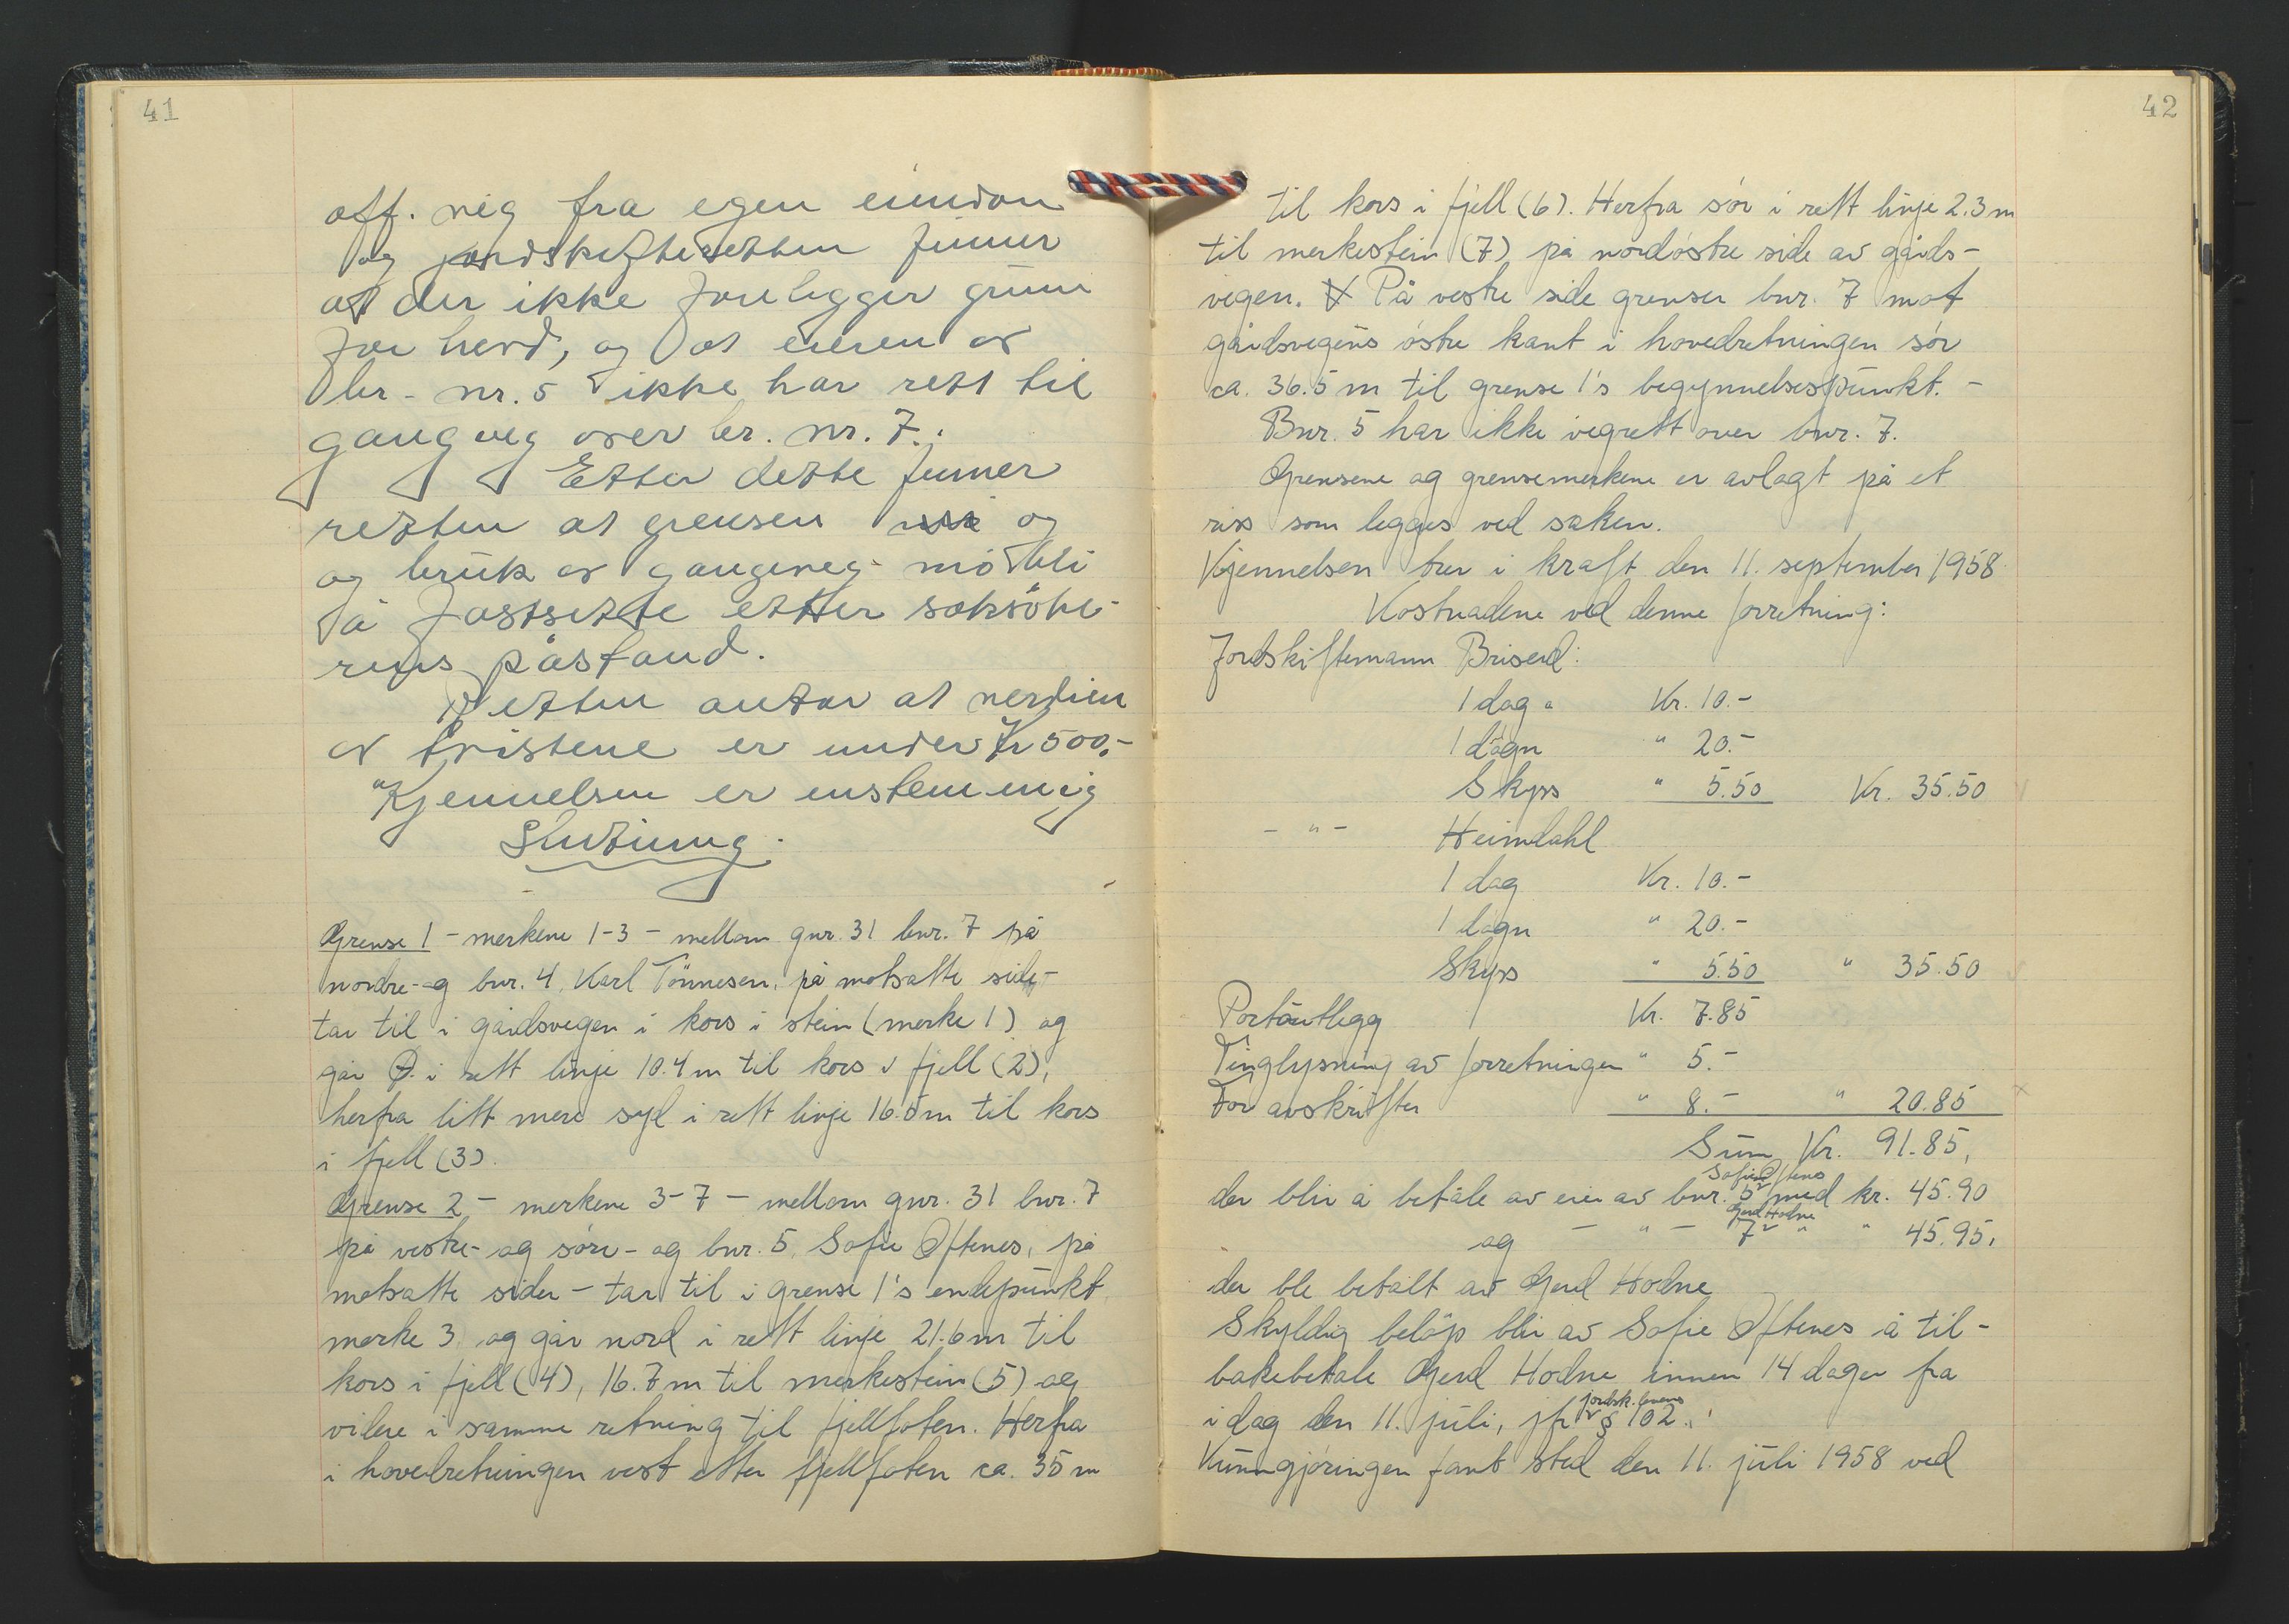 41
off. veg fra egen eiendom
og jordskifteretten finner
at der ikke foreligger grunn
for hevd, og at eieren av
br. nr. 5 ikke har rett til
gangveg over br. nr. 7.
Etter dette finner
retten at grensen og
og bruk av gangveg må bli
å fastsette etter saksøke-
rens påstand.
Retten antar at verdien
av tvistene er under kr 500,-
Kjennelsen er enstemmig
Slutning.
Grense 1 - merkene 1-3 - mellom gnr. 31 bnr. 7 på
nordre- og bnr. 4, Karl Tönnesen, på motsatte side -
tar til i gårdsvegen i kors i stein (merke 1) og
går Ø. i rett linje 10.4 m til kors i fjell (2),
herfra litt mere syd i rett linje 16.5 m til kors
i fjell (3).
Grense 2 - merkene 3-7 - mellom gnr. 31 bnr. 7
på vestre- og søre- og bnr. 5, Sofie Øftenes, på
motsatte sider - tar til i grense 1's endepunkt
merke 3 og går nord i rett linje 21.6 m til
kors i fjell (4), 16.7 m til merkestein (5) og
videre i samme retning til fjellfoten. Herfra
i hovedretningen vest etter fjellfoten ca. 35 m
42
til kors i fjell (6). Herfra sør i rett linje 2.3 m
til merkestein (7) på nordøstre side av gårds-
vegen. På vestre side grenser bnr. 7 mot
gårdsvegens østre kant i hovedretningen sør
ca. 36.5 m til grense 1's begynnelsespunkt. -
Bnr. 5 har ikke vegrett over bnr. 7.
Grensene og grensemerkene er avlagt på et
riss som legges ved saken.
Kjennelsen trer i kraft den 11. september 1958
Kostnadene ved denne forretning:
Jordskiftemann Briseid:
1 dag a Kr. 10.-
1 døgn " 20.-
Skyss " 5.50 Kr. 35.50
- " - Heimdahl
1 dag Kr. 10.-
1 døgn " 20.-
Skyss " 5.50 " 35.50
Portoutlegg Kr. 7.85
Tinglysning av forretningen " 5.-
For avskrifter " 8.- " 20.85
Sum Kr. 91.85,
Sofie Øftenes
der blir å betale av eier av bnr. 5 med kr. 45.90
Gerd Hodne
og - " - 7 " " 45.95,
der ble betalt av Gerd Hodne
Skyldig beløp blir av Sofie Øftenes å til-
bakebetale Gerd Hodne innen 14 dager fra
jordsk. lovens
i dag den 11. juli, jfr § 102.
Kunngjøringen fant sted den 11. juli 1958 ved